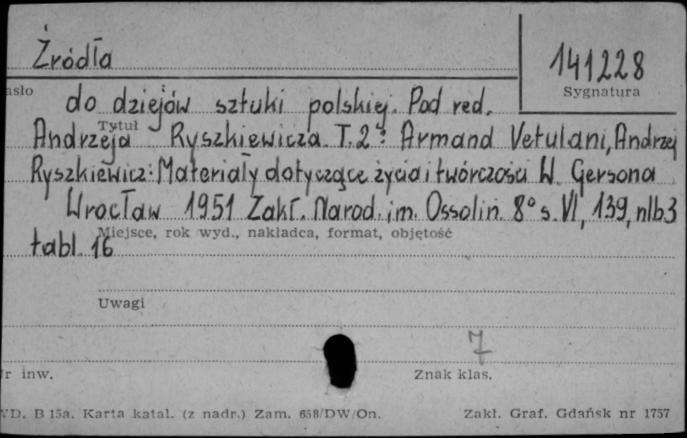 Źródła
141228
asło
Sygnatura
do dziejów sztuki polskiej. Pod red.
Tytuł
Andrzeja Ryszkiewicza. T.2: Armand Vetulani, Andrzej
Ryszkiewicz: Materiały dotyczące życia i twórczości W. Gersona
Wrocław 1951 Zakł. Narod. im. Ossolin. 8° s. VI, 139, nlb 3
Miejsce, rok wyd., nakładca, format, objętość
tabl. 16
Uwagi
7
r inw.
Znak klas.
VD. B 15a. Karta katal. (z nadr.) Zam. 658/DW/On.
Zakł. Graf. Gdańsk nr 1757